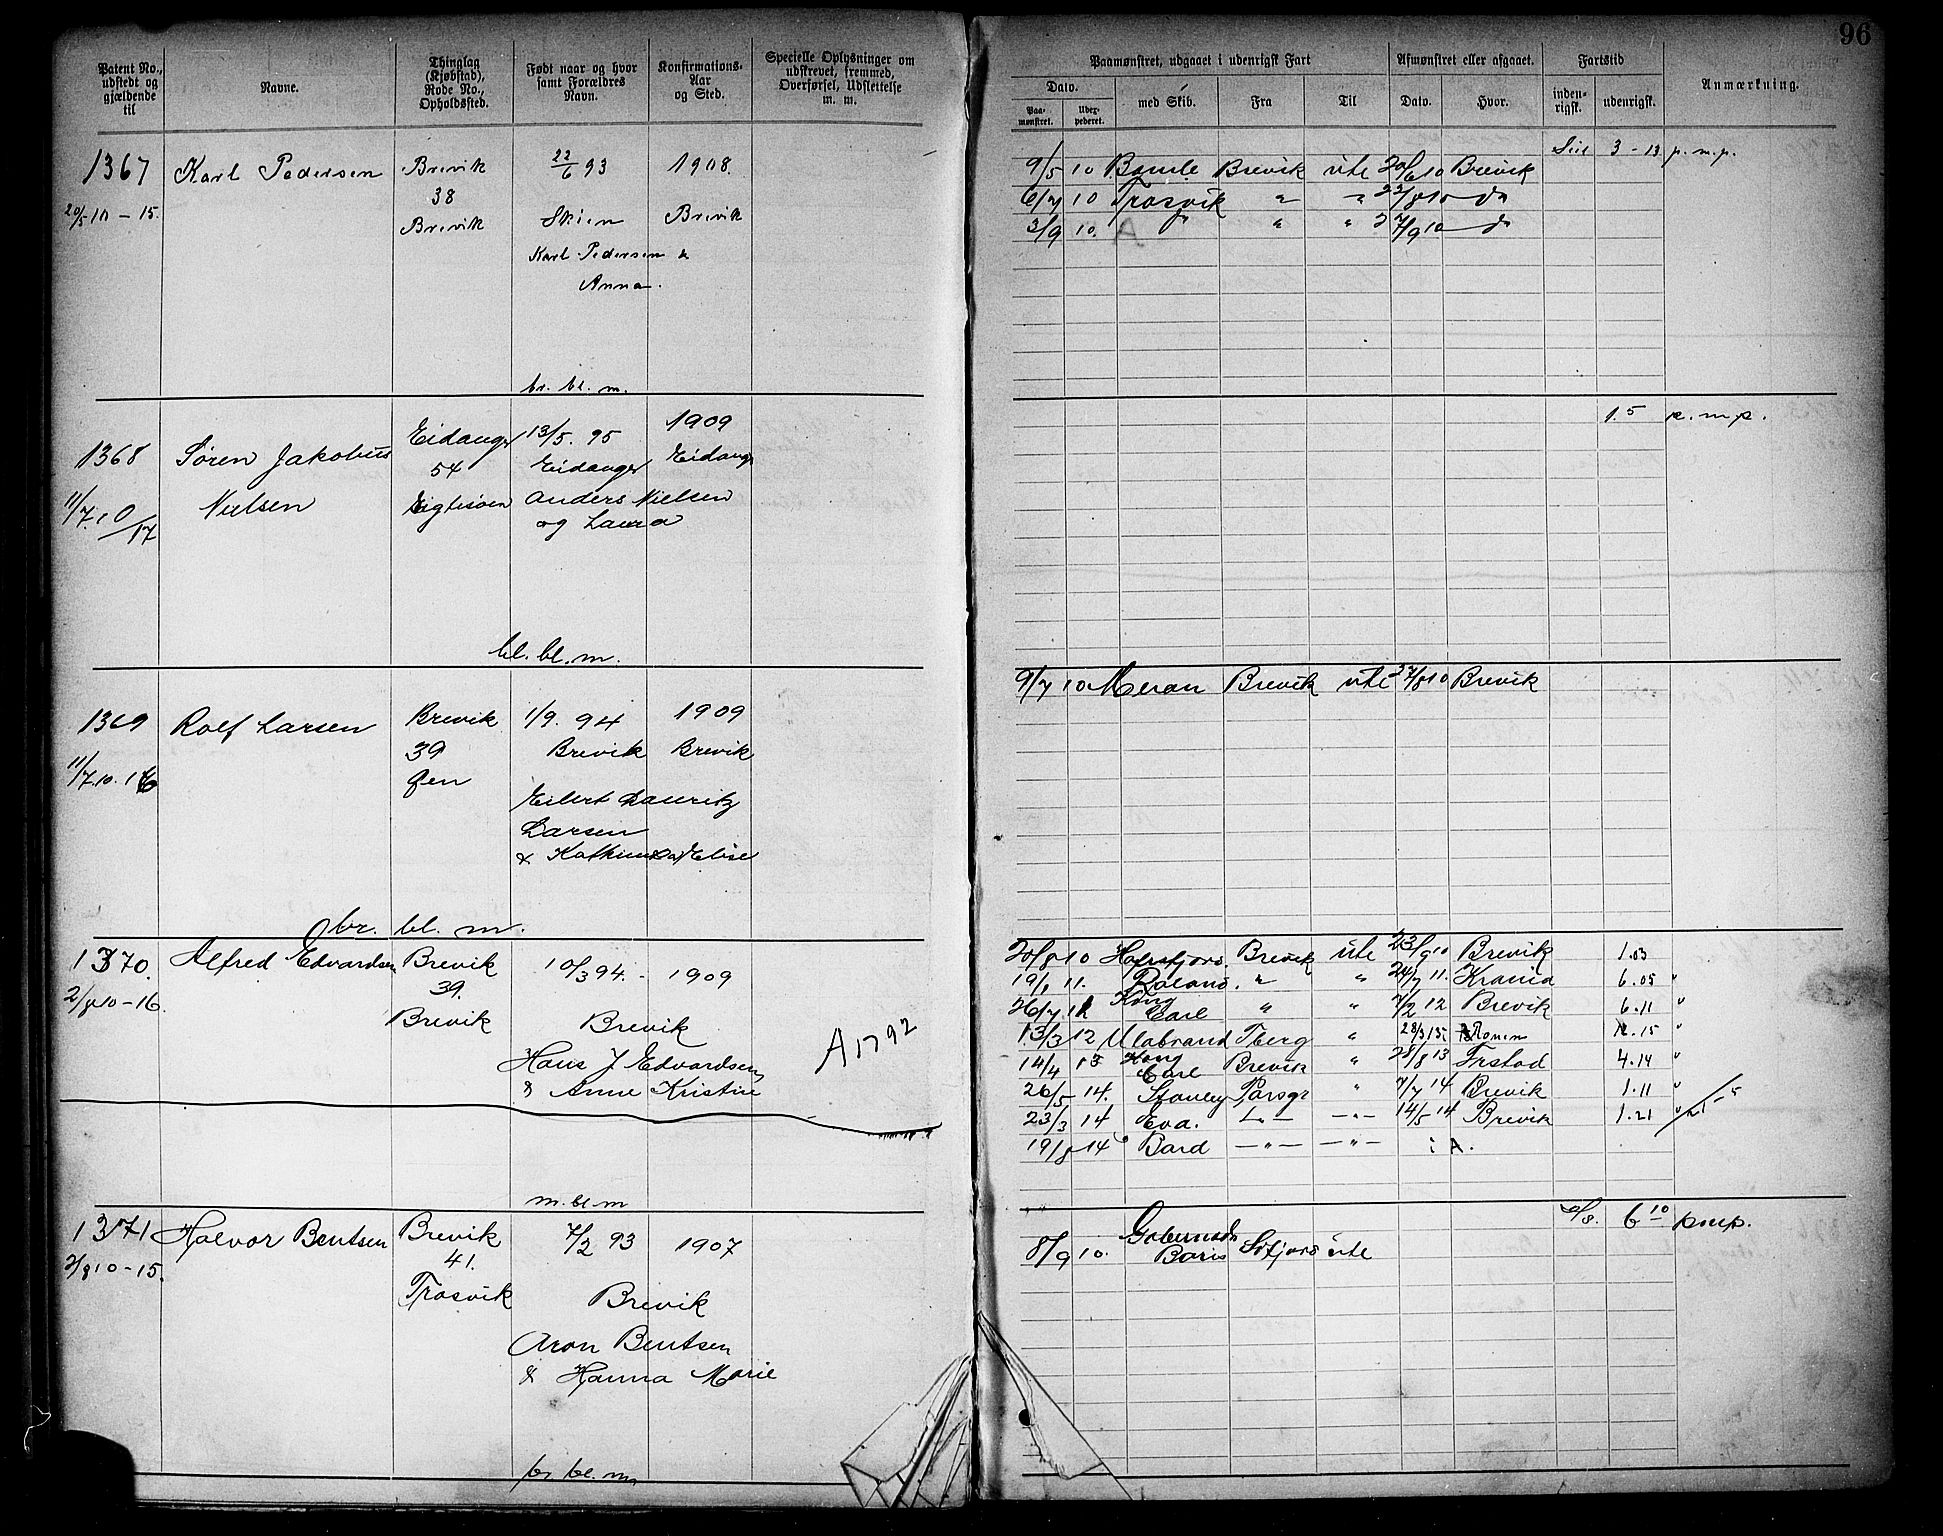 96
Patent No., udstedt og gjældende til
Navne.
Thinglag (Kjøbstad), Rode No., Opholdssted.
Født naar og hvor samt Forældres Navn.
Konfirmations-Aar og Sted.
Specielle Oplysninger om udskrevet, fremmed, Overførsel, Udslettelse m. m.
Paamønstret, udgaaet i udenrigsk Fart
Afmønstret eller afgaaet.
Fartstid
Anmærkning.
Dato.
Paa-mønstret.
med Skib.
Fra
Til
Dato.
Hvor.
inden-rigsk.
udenrigsk.
1367 Karl Pedersen Brevik 22/6 93 1908.
38
20/5 10 - 15. Brevik Skien Brevik
Karl Pedersen &
Anna.
br. bl. m.
3 - 13 p.m.p.
9/5 10 Bamle Brevik ute 20/6 10 Brevik
6/7 10 Trosvik " " 22/8 10 do
3/9 10. " " 27/9 10 do
A
1368 Søren Jakobus Eidanger 13/5. 95 1909
54 Eidanger Eidang
11/7 10/17 Nielsen Anders Nielsen
og Laura
bl. bl. m.
1.5 p.m.p.
1369 Rolf Larsen Brevik 1/9. 94 1909
39 Brevik Brevik
11/7 10. 16 Øen
Eilert Lauritz
Larsen
br. bl. m.
9/7 10 Meran Brevik ute 27/8 10 Brevik
1370. Alfred Edvardsen Brevik 10/3 94. - 1909
39.
2/8 10 - 16. Brevik Brevik
Hans J Edvardsen
& Anne Kristine
A 1792
m. bl. m
20/8 10 Brevik ute 23/9 10 Brevik 1.03
19/1 11. Roland. " " 24/7 11. Krania 6.05 "
Kong Carl " " 7/2 12 Brevik 6.11 "
13/3 12 Ulabrand Tberg "
14/4 13 Kong Carl Brevik " 28/8 13 Frstad 4.14 "
26/5 14. Stanley Porsgr " 7/7 14 Brevik 1.11 "
23/3 14 Eva. -"- -"- 14/5 14 Brevik 1.21 "
19/8 14 Bard -"- -"- i A.
1371 Halvor Bentsen Brevik 7/2 93 1907
41.
2/8 10 - 15. Trosvik Brevik
Aron Bentsen
& Hanna Marie
br bl. m
6 10 pmp.
8/9 10. Boris ute